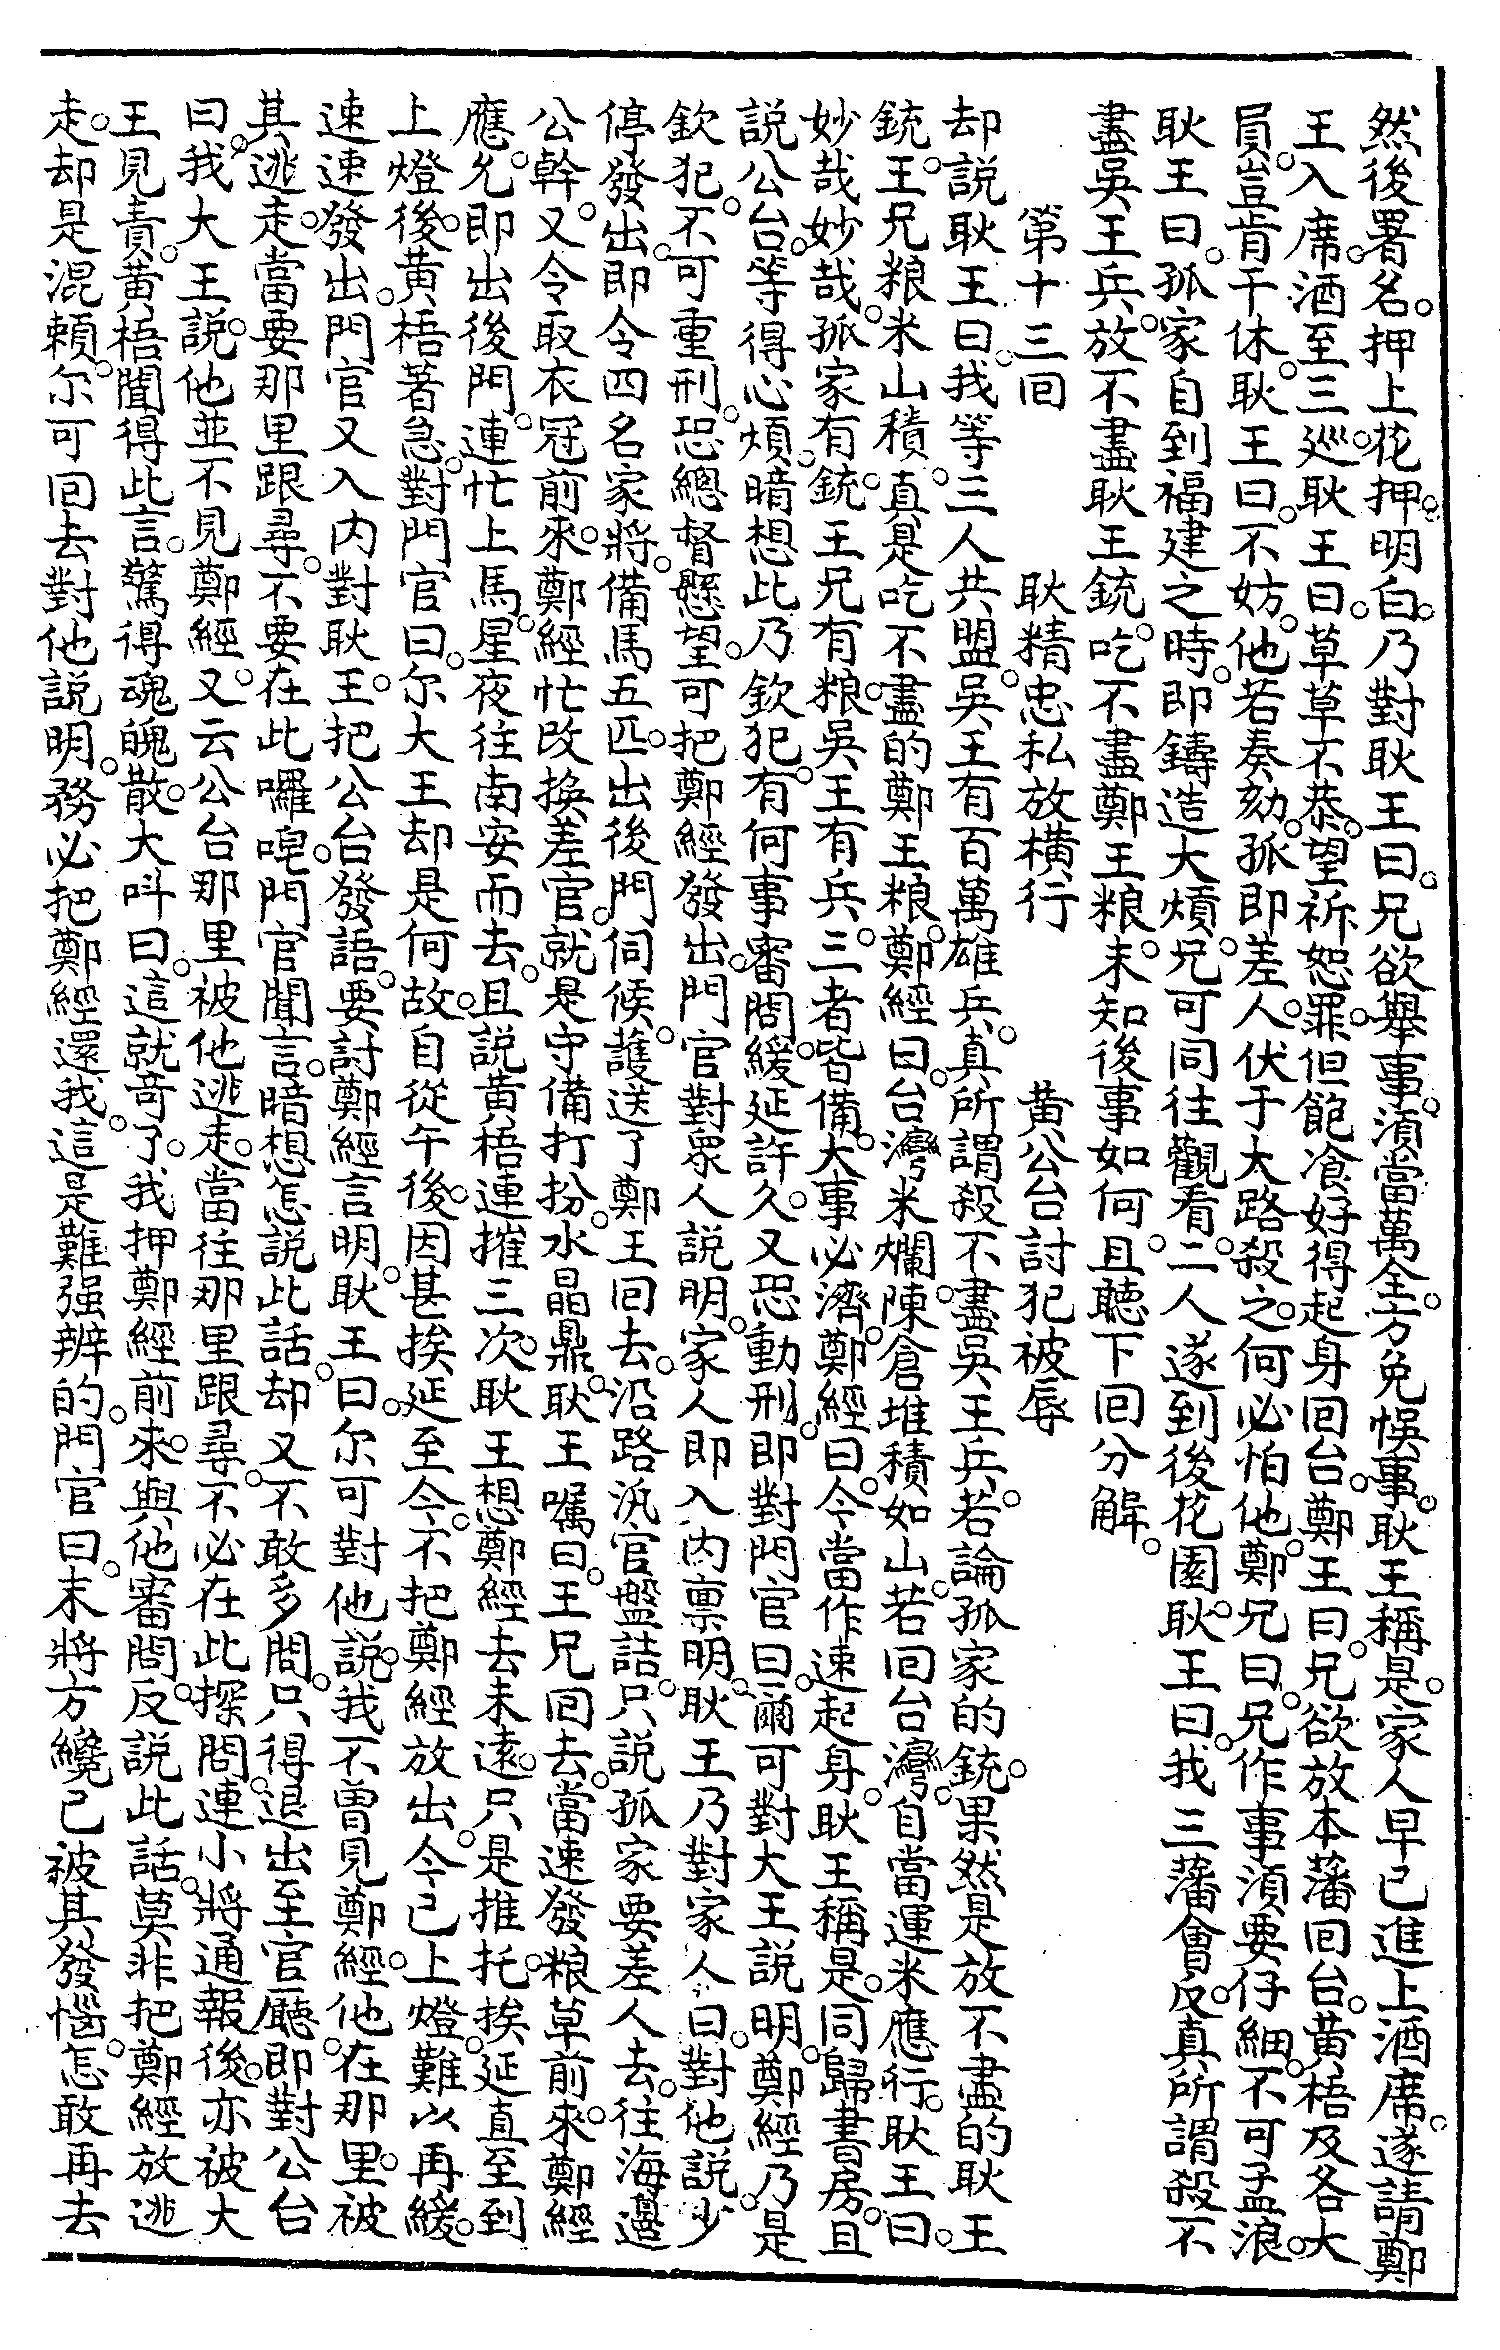 然後署名。押上花押。明白。乃對耿王曰。兄欲舉事。須當萬全。方免悞事。耿王稱是。家人早已進上酒席。遂請鄭
王入席。酒至三巡。耿王曰。草草不恭。望祈恕罪。但飽飡好得起身回台。鄭王曰。兄欲放本藩回台。黃梧及各大
員。豈肯干休。耿王曰。不妨。他若奏劾孤。即差人。伏于大路殺之。何必怕他。鄭兄曰。兄作事須要仔細。不可孟浪。
耿王曰。孤家自到福建之時。即鑄造大熕。兄可同往觀看。二人遂到後花園。耿王曰。我三藩會反。真所謂殺不
盡吳王兵。放不盡耿王銃。吃不盡鄭王粮。未知後事如何。且聽下回分解。
第十三回　耿精忠私放橫行　黃公台討犯被辱
却說耿王曰。我等三人共盟。吳王有百萬雄兵。真所謂殺不盡吳王兵。若論孤家的銃。果然是放不盡的耿王
銃。王兄粮米山積。真是吃不盡的鄭王粮。鄭經曰。台灣米爛陳倉。堆積如山。若回台灣。自當運米應行。耿王曰。
妙哉妙哉。孤家有銃。王兄有粮。吳王有兵。三者皆備。大事必濟。鄭經曰。今當作速起身。耿王稱是。同歸書房。且
說公台。等得心煩。暗想此乃欽犯。有何事審問。緩延許久。又恐動刑。即對門官曰。爾可對大王說明。鄭經乃是
欽犯。不可重刑。恐總督懸望。可把鄭經發出。門官對眾人說明。家人即入內禀明。耿王乃對家人曰。對他說。少
停發出。即令四名家將。備馬五匹。出後門伺候。護送了鄭王回去。沿路汛官盤詰。只說孤家要差人去。往海邊
公幹。又令取衣冠前來。鄭經忙改換差官。就是守備打扮。水晶鼎。耿王嘱曰。王兄回去。當速發粮草前來。鄭經
應允。即出後門。連忙上馬。星夜往南安而去。且說黃梧連摧三次。耿王想鄭經去未遠。只是推托。挨延直至到
上燈後。黃梧著急。對門官曰。尔大王却是何故。自從午後。因甚挨延至今。不把鄭經放出。今已上燈。難以再緩。
速速發出。門官又入內對耿王。把公台發語。要討鄭經言明。耿王曰。尔可對他說。我不曾見鄭經。他在那里。被
其逃走。當要那里跟尋。不要在此囉唣。門官聞言。暗想怎說此話。却又不敢多問。只得退出至官廳。即對公台
曰。我大王說。他並不見鄭經。又云公台那里被他逃走。當往那里跟尋。不必在此探問。連小將通報後。亦被大
王見責。黃梧聞得此言。驚得魂魄散。大呌曰。這就奇了。我押鄭經前來。與他審問。反說此話。莫非把鄭經放逃
走。却是混賴。尔可回去對他說明。務必把鄭經還我。這是難强辨的。門官曰。末將方纔已被其發惱。怎敢再去